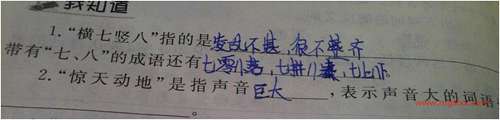 我知道
1.“横七竖八”指的是变叉不甚,很不整齐
带有“七、八”的成语还有七零八落,七拼八凑,七上八下
2.“惊天动地”是指声音巨大,表示声音大的词语
。